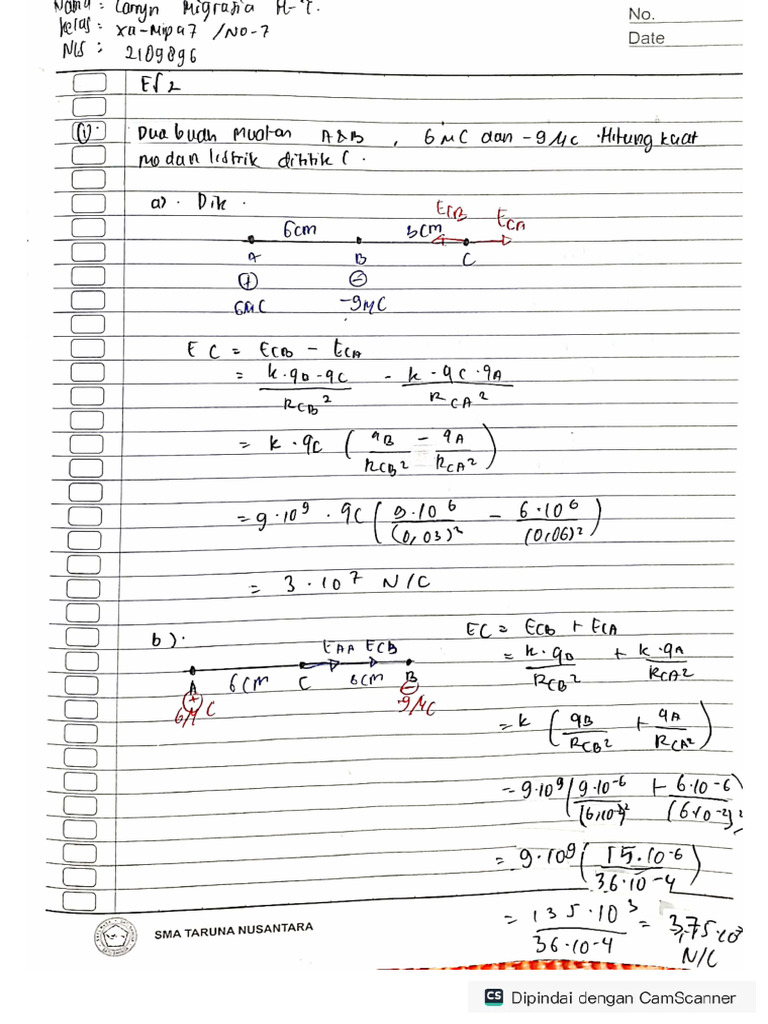 Nama : Camyn Migrasia H-T.
No.
Kelas : XII-Mipa7 /No-7
Date
NIS : 2109896
ES 2
(1). Dua buah muatan A&B , 6 MC dan -9 MC . Hitung kuat
medan listrik dititik C .
a) . Dik .
ECB
ECA
6cm
3cm
A
B
C
+
-
6MC
-9MC
EC = ECB - ECA
= k.qB.qC/RCB² - k.qC.qA/RCA²
= k . qC (qB/RCB² - qA/RCA²)
= 9.10⁹ . qC (9.10⁶/(0,03)² - 6.10⁶/(0,06)²)
= 3.10⁷ N/C
b).
EAA ECB
A
6cm
C
6cm
B
+
-
6MC
-9MC
EC = ECB + ECA
= k.qB/RCB² + k.qA/RCA²
= k (qB/RCB² + qA/RCA²)
= 9.10⁹ (9.10-6/(6.10-2)² + 6.10-6/(6.10-2)²)
= 9.10⁹ (15.10-6/36.10-4)
= 135.10³/36.10-4 = 3,75.10⁷
N/C
SMA TARUNA NUSANTARA
CS Dipindai dengan CamScanner